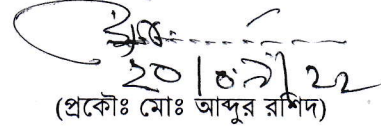 ২০|০৯|২২
(প্রকৌঃ মোঃ আব্দুর রশিদ)